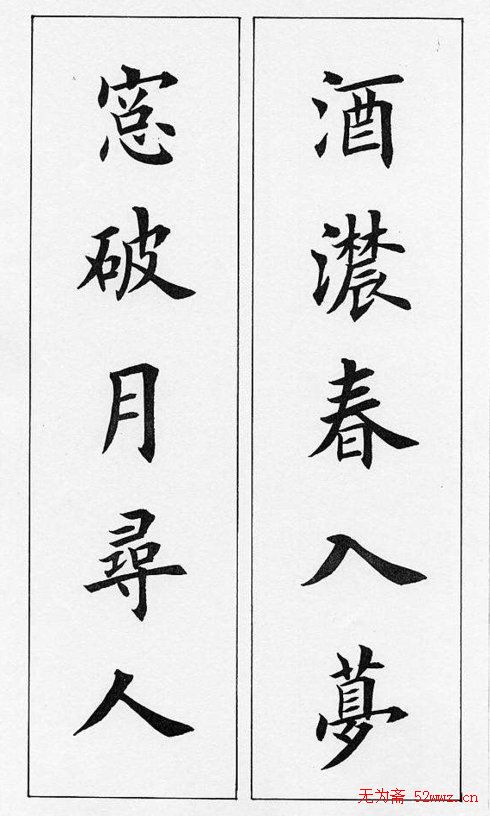 酒濃春入夢
窓破月尋人
无为斋 52wwz.cn